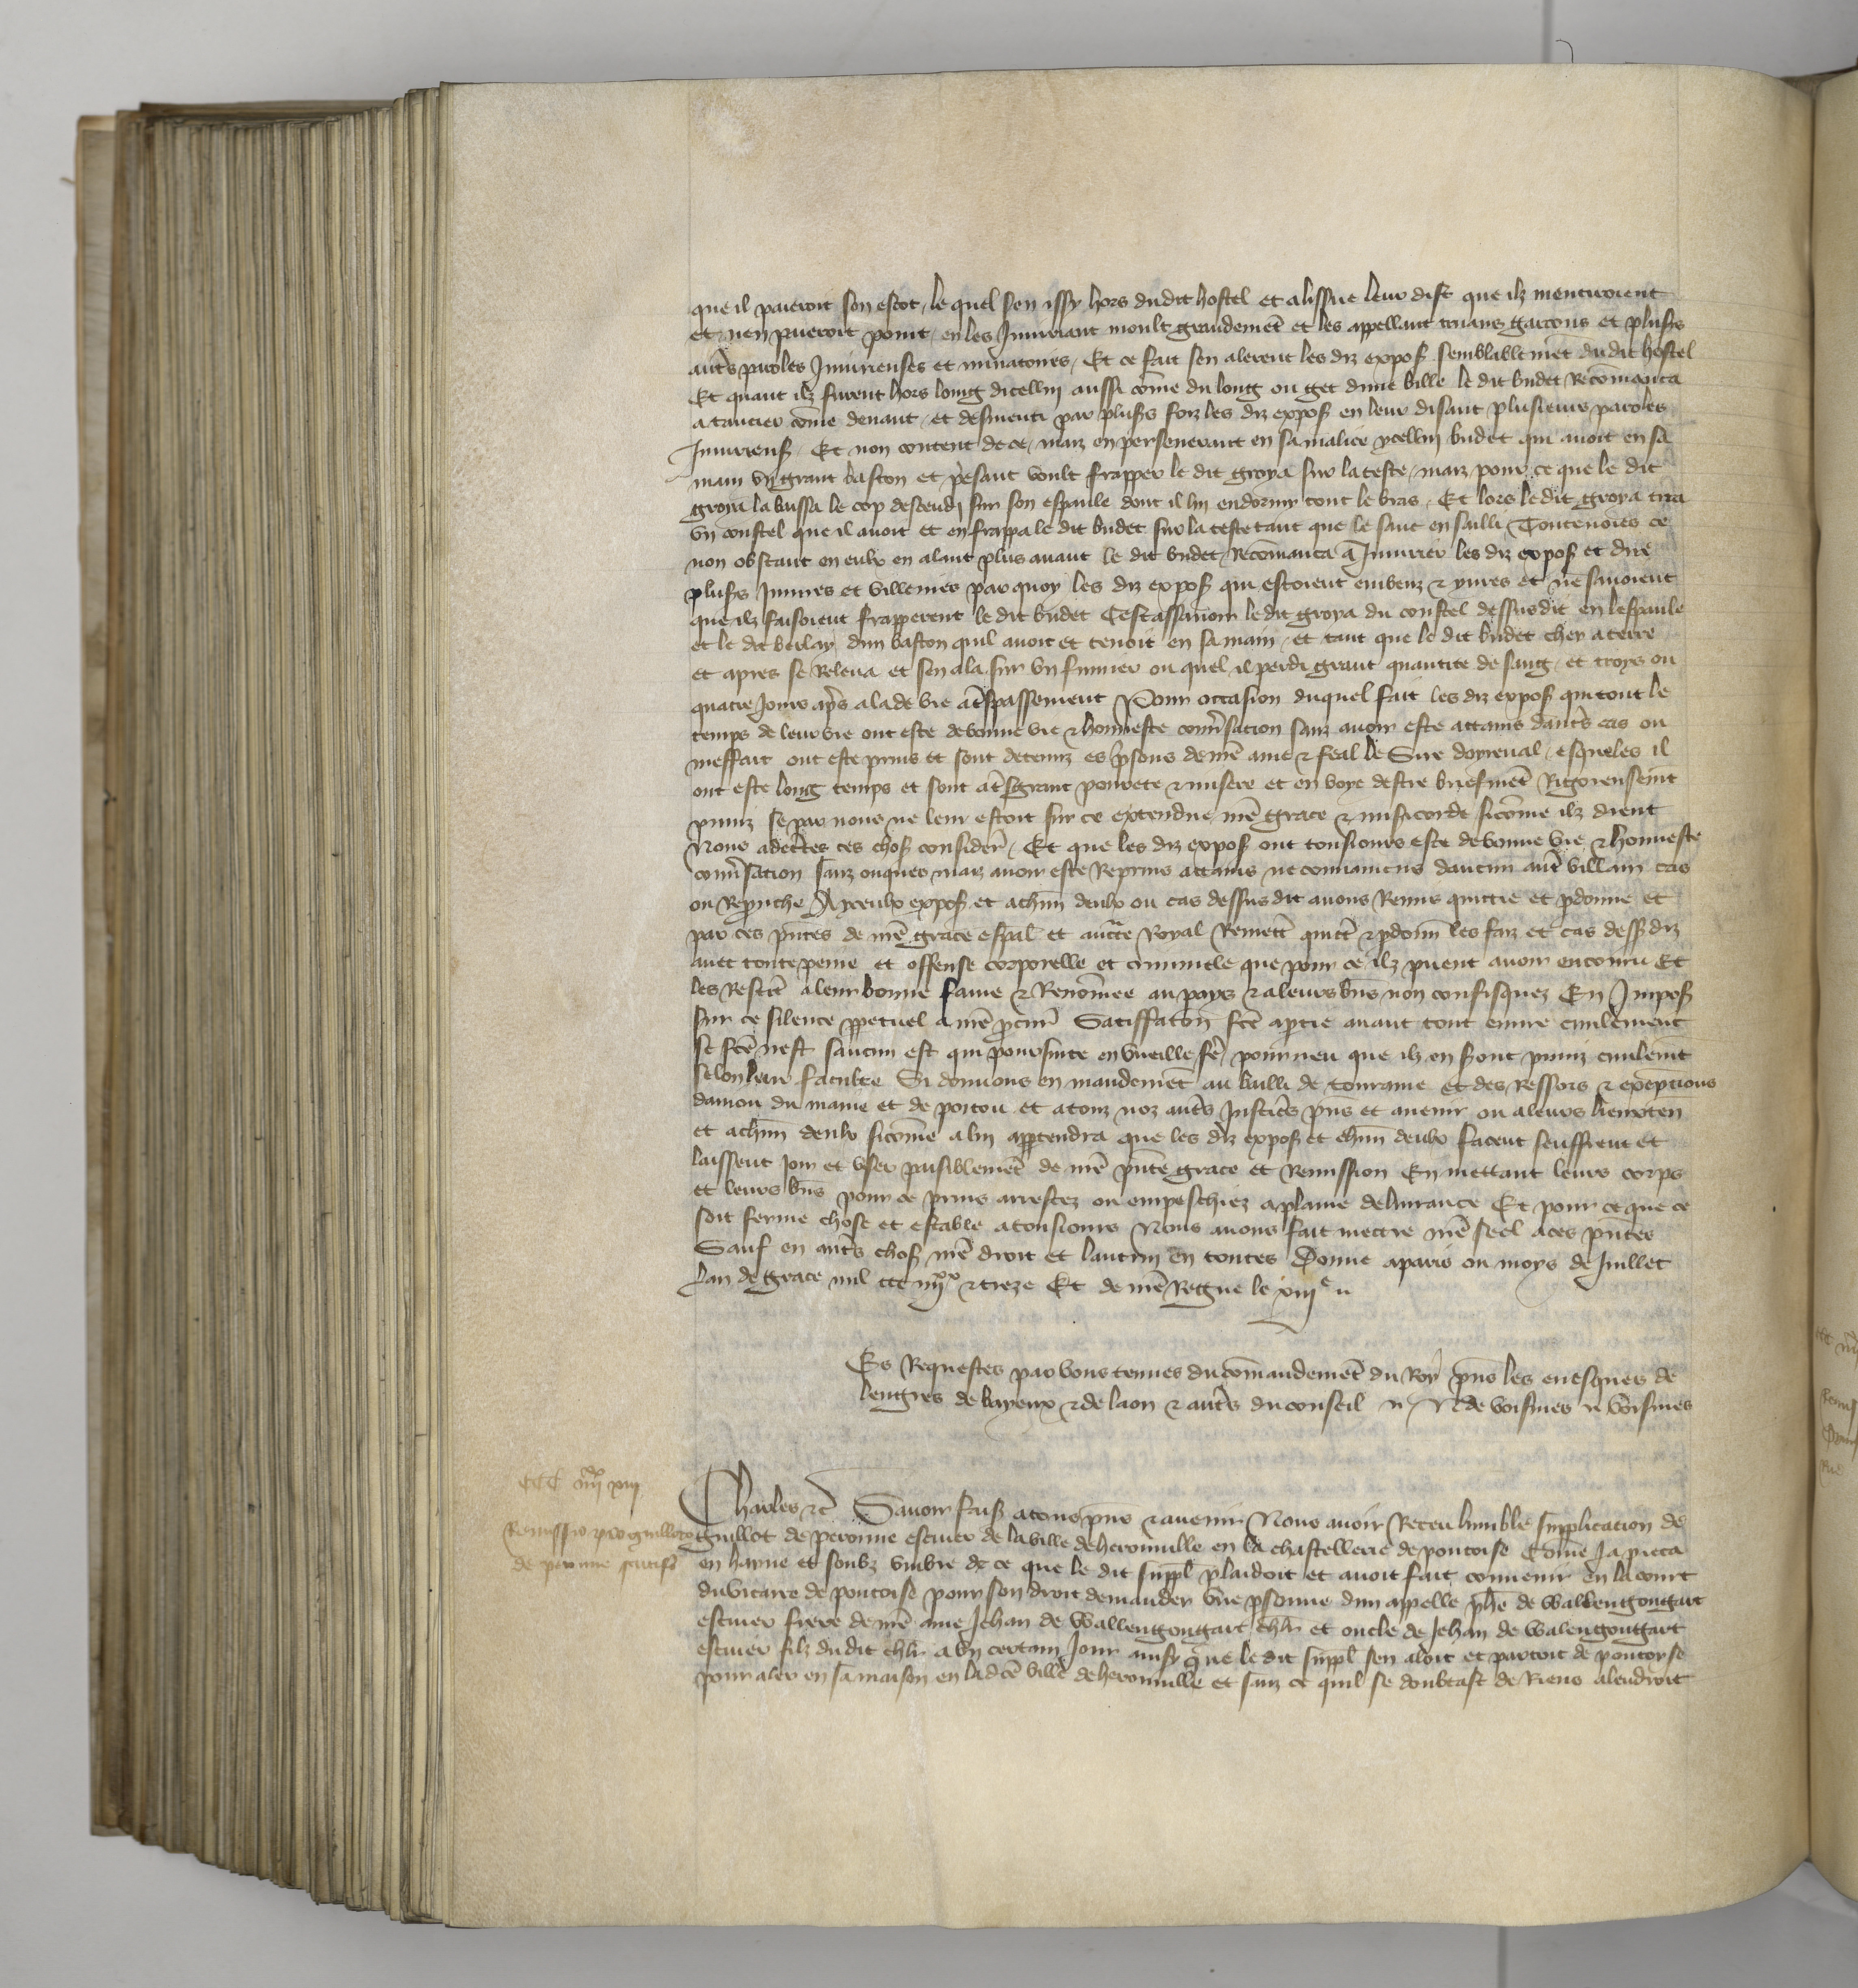 que il paieroit son escot, le quel sen issy hors dudit hostel et a lissue leur dist que ilz mentiroient
et nen paieroit point, en les Injuriant moult grandemēt et les appellant truans garcons et plusrs
autrs paroles Injurieuses et minatoires, Et ce fait sen alerent les diz expos semblablemēt du dit hostel
Et quant ilz furent hors loing dicellui aussi cōme du long ou get dune bille le dit budet Recōmanca
a tancier cōme devant, et desmenti par plusrs foiz les diz expos en leur disant plusieurs paroles
Injurieus, Et non content de ce, maiz en perseverant en sa malice ycellui budet qui avoit en sa
main un grant baston et pesant voult frapper le dit groya sur la teste, maiz pour ce que le dit
groya la baissa le cop descendi sur son espaule dont il lui endormy tout le bras, Et lors le dit groya tira
un coustel que il avoit et en frappa le dit budet sur la teste tant que le sanc en sailli Toutevoies ce
non obstant en eulx en alant plus avant le dit budet Recōmanca a Injurier les diz expos et dire
plusrs Injures et villenies par quoy les diz expos qui estoient embeuz & yvres et ne savoient
que ilz faisoient frapperent le dit budet Cestassavoir le dit groya du coustel dessusdit en lespaule
et le dit berlay dun baston quil avoit et tenoit en sa main, et tant que le dit budet chey a terre
et apres se Releva et sen ala sur un fumier ou quel il perdi grant quantite de sang, et troys ou
quatre Jours aprs ala de vie a trespassement Pour occasion duquel fait les diz expos qui tout le
temps de leur vie ont este de bonne vie & honneste convsation sanz avoir este attains dautrs cas ou
meffait ont este prins et sont detenuz es prisons de nrē ame & feal le Sire doyreval, esqueles il
ont este long temps et sont a trs grant povrete & misere et en voye destre briefmēt Rigoreusemt
puniz se par nous ne leur estoit sur ce extendue nrē grace & misicorde sicōme ilz dient
Nous adecrtes ces chos consider, Et que les diz expos ont tousiours este de bonne vie & honneste
convsation sanz onques maiz avoir este Reprins attains ne convaincus daucun autr villain cas
ou Reprouche A yceulx expos et a chūn deulx ou cas dessus dit avons Remis quittie et pdonne et
par ces pntes de nrē grace espal et auctte Royal Remett quitt & pdonn les faiz et cas dess diz
avec toute peine et offense corporelle et criminele que pour ce ilz puent avoir encouru Et
les Restit a leur bonne fame & Renōmee au pays & a leurs bns non confisquez En Impos
sur ce silence ppetuel a nrē pcur Satisffaton fcē a partie avant tout euvre civilement
se fcē nest saucun est qui poursuite en vueille fr, pourveu que ilz en sont puniz civilemt
selon leur faculte Si donnons en mandemēt au bailli de touraine et des Ressors & exepcions
danjou du maine et de poitou et a touz noz autrs Justicrs pns et avenir ou a leurs lieuxten
et a chūn deulx sicōme a lui apptendra que les diz expos et chūn deulx facent seuffrent et
laissent joir et user paisiblemēt de nrē pnte grace et Remission En mettant leurs corps
et leurs bns pour ce prins arrestez ou empeschiez a plaine delivrance Et pour ce que ce
soit ferme chose et estable a tousiours Nous avons fait mettre nrē seel a ces pntes
Sauf en autrs chos nrē droit et lautrui en toutes Donne a paris ou moys de Juillet
lan de grace mil ccc iiijxx & treze Et de nrē Regne le xiije
Es Requestes par vous tenues du cōmandemēt du Roy pns les evesques de
lengres de bayeux & de laon & autrs du conseil N de voisines voisines
CCC iiijxx xiij
Remissio pro guilloto
de peronne scutif
Charles &c Savoir fais a tous pns & avenir Nous avoir Receu lumble supplicacion de
guillot de peronne escuier de la ville de herouville en la chastellerie de pontoise Cōme ja pieca
en hayne et soubz umbre de ce que le dit suppl plaidoit et avoit fait convenir en la court
du vicaire de pontoise pour son droit demander une psonne dun appelle phe de wallengongart
escuier frere de nrē ame Jehan de wallengongart chlr et oncle de Jehan de walengougart
escuier filz du dit chlr a un certain Jour ainsy que le dit suppl sen aloit et partoit de pontoyse
pour aler en sa maison en lad cē ville de herouville et sanz ce quil se doubtast de Riens alendroit